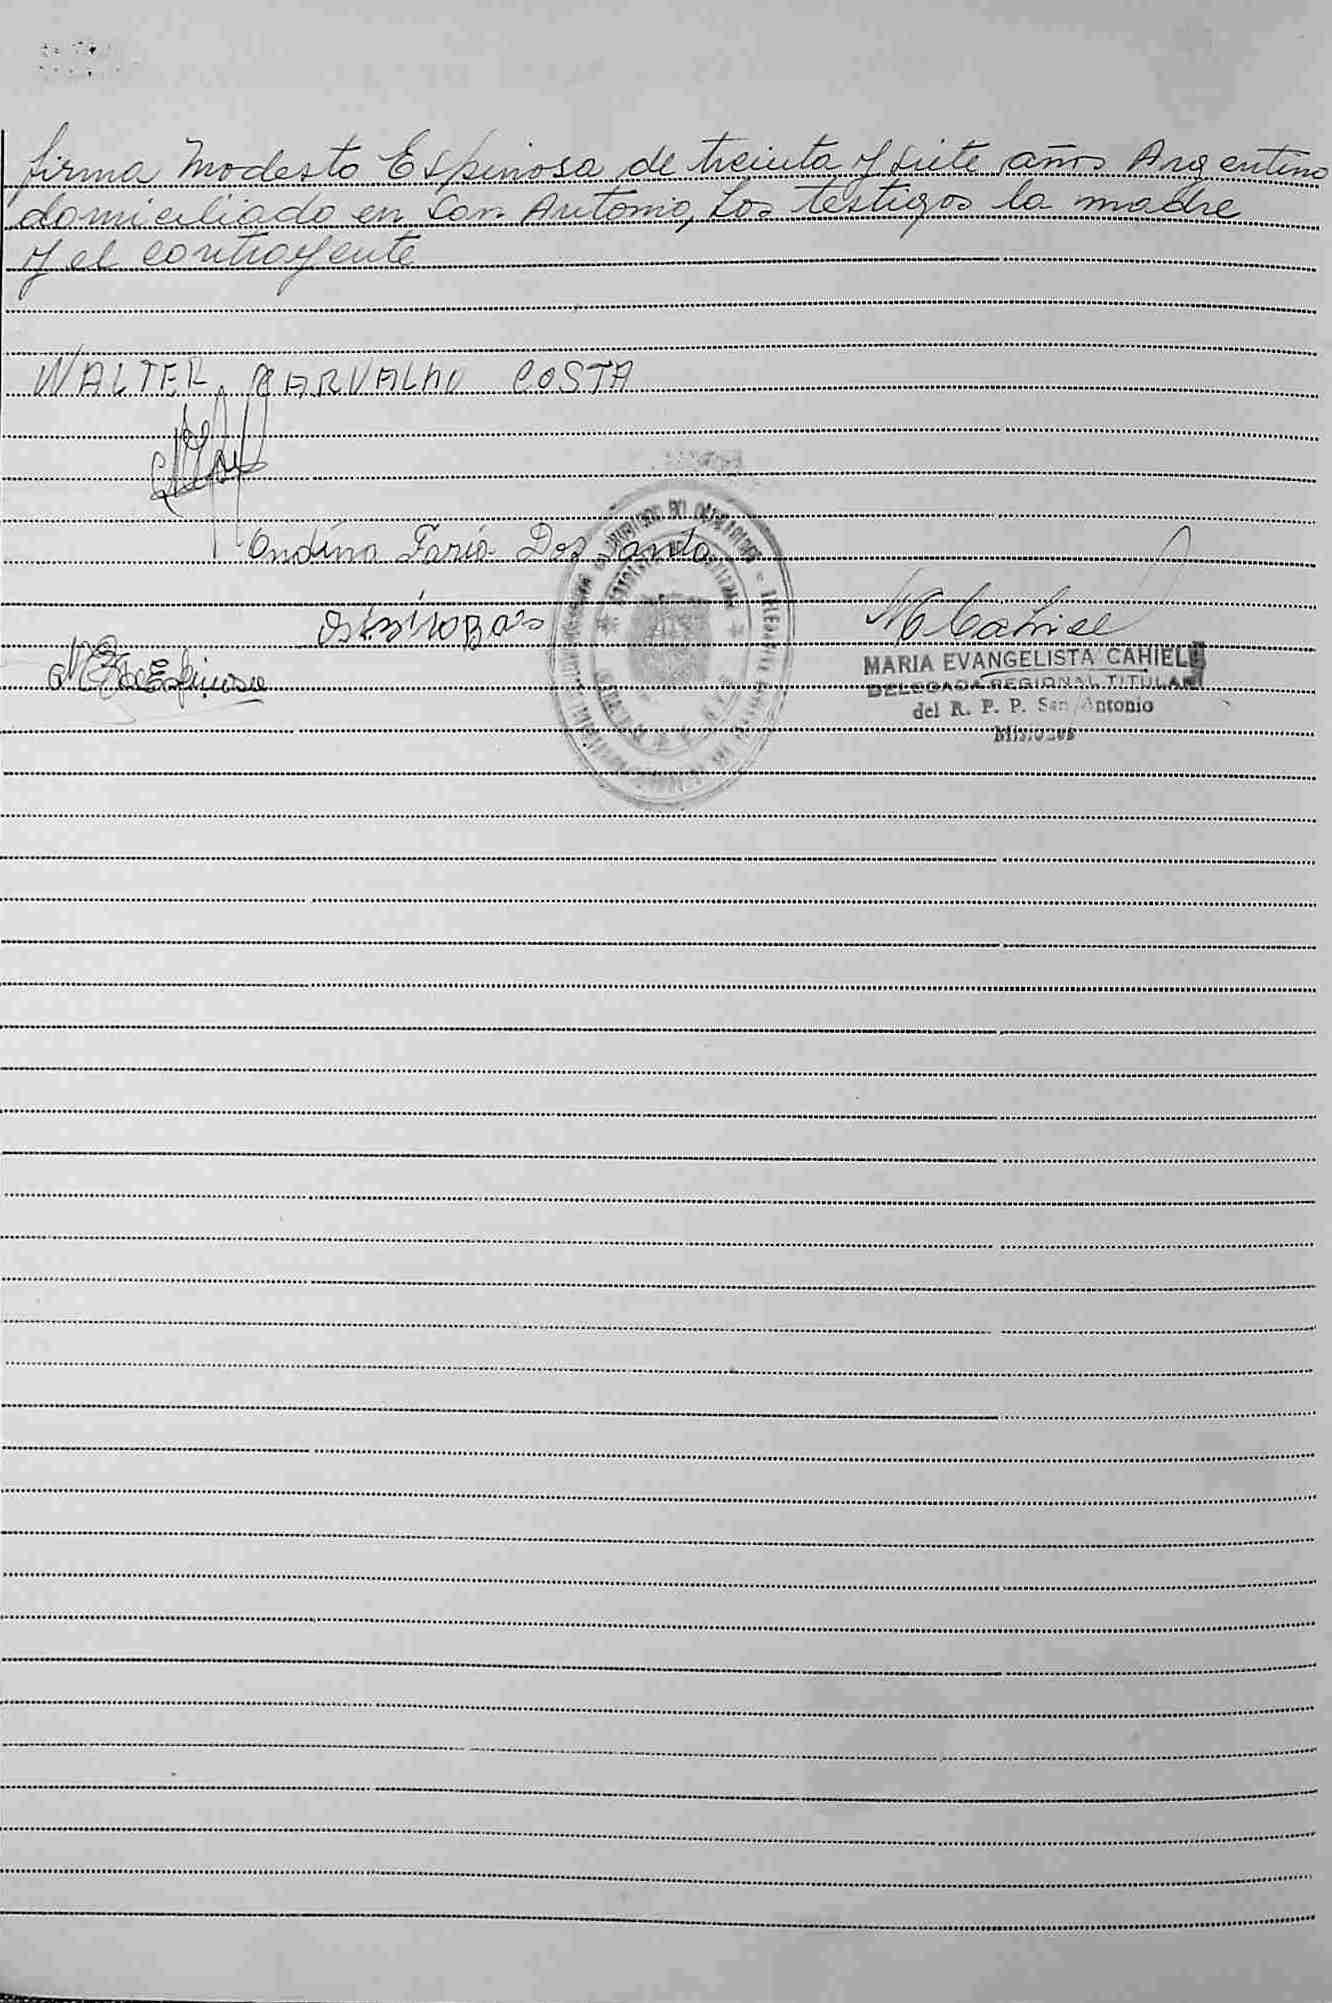 firma Modesto Espinosa de treinta y siete años Argentino
domiciliado en San Antonio, Los testigos la madre
y el contrayente
WALTER CARVALHO COSTA
Ondina Faria Dos
M Cahiel
Espinosa
MARIA EVANGELISTA CAHIEL
DELEGADA REGIONAL TITULAR
del R. P. P. San Antonio
Misiones